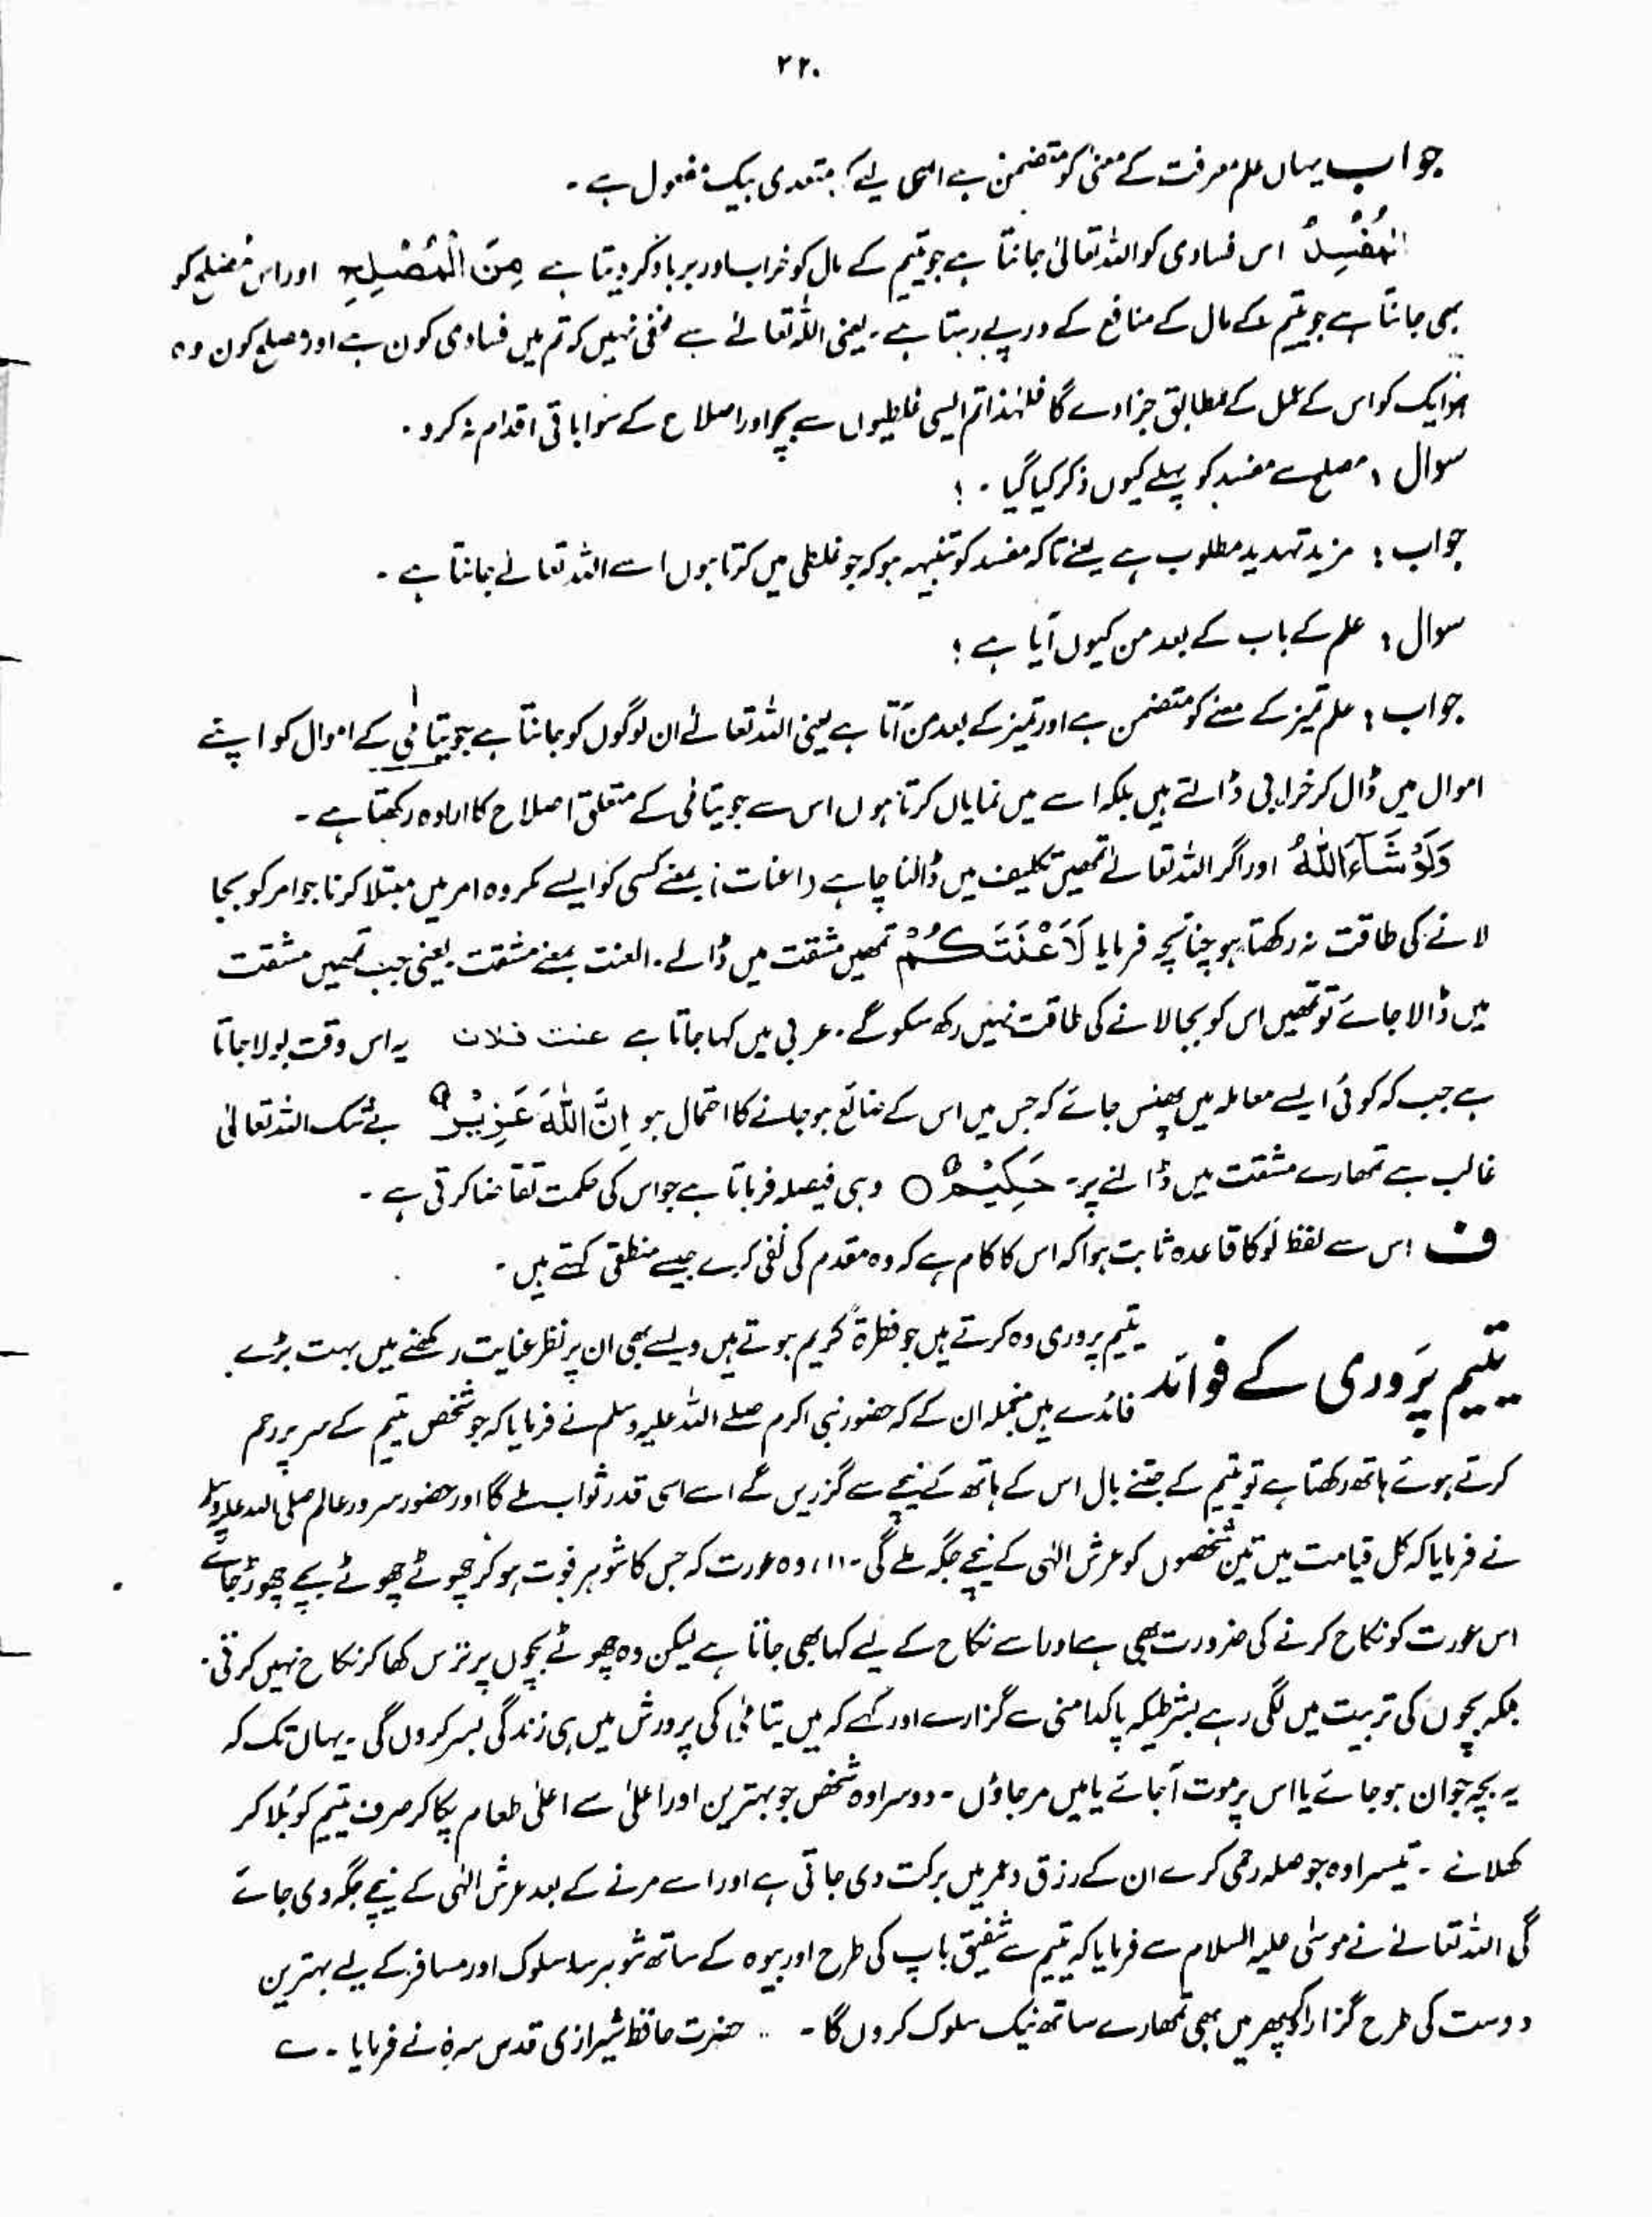 ۲۲۰
جواب یہاں علم معرفت کے معنیٰ کو متضمن ہے اسی لیے متعدی بیک مفعول ہے ۔
الْمُفْسِدَ اس فسادی کو اللہ تعالیٰ جانتا ہے جو یتیم کے مال کو خراب اور برباد کر دیتا ہے مِنَ الْمُصْلِحِ اور اس مُصلح کو
بھی جانتا ہے جو یتیم کے مال کے منافع کے درپے رہتا ہے ۔ یعنی اللہ تعالےٰ سے مخفی نہیں کہ تم میں فسادی کون ہے اور مصلح کون وہ
ہر ایک کو اس کے عمل کے مطابق جزا دے گا فلہٰذا تم ایسی غلطیوں سے بچو اور اصلاح کے سوا باقی اقدام نہ کرو ۔
سوال : مصلح سے مفسد کو پہلے کیوں ذکر کیا گیا ۔ ؟
جواب : مزید تہدید مطلوب ہے یعنے تاکہ مفسد کو تنبیہہ ہو کہ جو غلطی میں کرتا ہوں اسے اللہ تعالےٰ جانتا ہے ۔
سوال : علم کے باب کے بعد من کیوں آیا ہے ؟
جواب : علم تمیز کے معنے کو متضمن ہے اور تمیز کے بعد من آتا ہے یعنی اللہ تعالےٰ ان لوگوں کو جانتا ہے جو یتامٰی کے اموال کو اپنے
اموال میں ڈال کر خرابی ڈالتے ہیں بلکہ اسے میں نمایاں کرتا ہوں اس سے جو یتامٰی کے متعلق اصلاح کا ارادہ رکھتا ہے ۔
وَلَوْ شَآءَ اللّٰهُ اور اگر اللہ تعالےٰ تمھیں تکلیف میں ڈالنا چاہے (اعنات) بمعنے کسی کو ایسے مکروہ امر میں مبتلا کرنا جو امر کو بجا
لانے کی طاقت نہ رکھتا ہو چنانچہ فرمایا لَاَعْنَتَكُمْ تمھیں مشقت میں ڈالے ۔ العنت بمعنے مشقت یعنی جب تمھیں مشقت
میں ڈالا جائے تو تمھیں اس کو بجا لانے کی طاقت نہیں رکھ سکو گے ۔ عربی میں کہا جاتا ہے عنت فلان یہ اس وقت بولا جاتا
ہے جب کہ کوئی ایسے معاملہ میں پھنس جائے کہ جس میں اس کے ضائع ہو جانے کا احتمال ہو اِنَّ اللّٰهَ عَزِيْزٌ بے شک اللہ تعالیٰ
غالب ہے تمھارے مشقت میں ڈالنے پر ۔ حَكِيْمٌ ○ وہی فیصلہ فرماتا ہے جو اس کی حکمت تقاضا کرتی ہے ۔
ف اس سے لفظ لَو کا قاعدہ ثابت ہوا کہ اس کا کام ہے کہ وہ مقدم کی نفی کرے جیسے منطقی کہتے ہیں ۔
یتیم پَروری کے فوائد
یتیم پروری وہ کرتے ہیں جو فطرۃً کریم ہوتے ہیں ویسے بھی ان پر نظر عنایت رکھنے میں بہت بڑے
فائدے ہیں منجملہ ان کے کہ حضور نبی اکرم صلے اللہ علیہ وسلم نے فرمایا کہ جو شخص یتیم کے سر پر رحم
کرتے ہوئے ہاتھ رکھتا ہے تو یتیم کے جتنے بال اس کے ہاتھ کے نیچے سے گزریں گے اسے اسی قدر ثواب ملے گا اور حضور سرور عالم صلی اللہ علیہ وسلم
نے فرمایا کہ کل قیامت میں تین شخصوں کو عرش الہٰی کے نیچے جگہ ملے گی ۔ (۱) وہ عورت کہ جس کا شوہر فوت ہو کر چھوٹے چھوٹے بچے چھوڑ جائے
اس عورت کو نکاح کرنے کی ضرورت بھی ہے اور اسے نکاح کے لیے کہا بھی جاتا ہے لیکن وہ چھوٹے بچوں پر ترس کھا کر نکاح نہیں کرتی ۔
بلکہ بچوں کی تربیت میں لگی رہے بشرطیکہ پاکدامنی سے گزارے اور کہے کہ میں یتامٰی کی پرورش میں ہی زندگی بسر کروں گی ۔ یہاں تک کہ
یہ بچہ جوان ہو جائے یا اس پر موت آ جائے یا میں مر جاؤں ۔ دوسرا وہ شخص جو بہترین اور اعلیٰ سے اعلیٰ طعام پکا کر صرف یتیم کو بُلا کر
کھلائے ۔ تیسرا وہ جو صلہ رحمی کرے ان کے رزق و عمر میں برکت دی جاتی ہے اور اسے مرنے کے بعد عرش الہٰی کے نیچے جگہ دی جائے
گی اللہ تعالےٰ نے موسیٰ علیہ السلام سے فرمایا کہ یتیم سے شفیق باپ کی طرح اور بیوہ کے ساتھ شوہر سا سلوک اور مسافر کے لیے بہترین
دوست کی طرح گزارا کر پھر میں بھی تمھارے ساتھ نیک سلوک کروں گا ۔ حضرت حافظ شیرازی قدس سرہٗ نے فرمایا ۔ ے